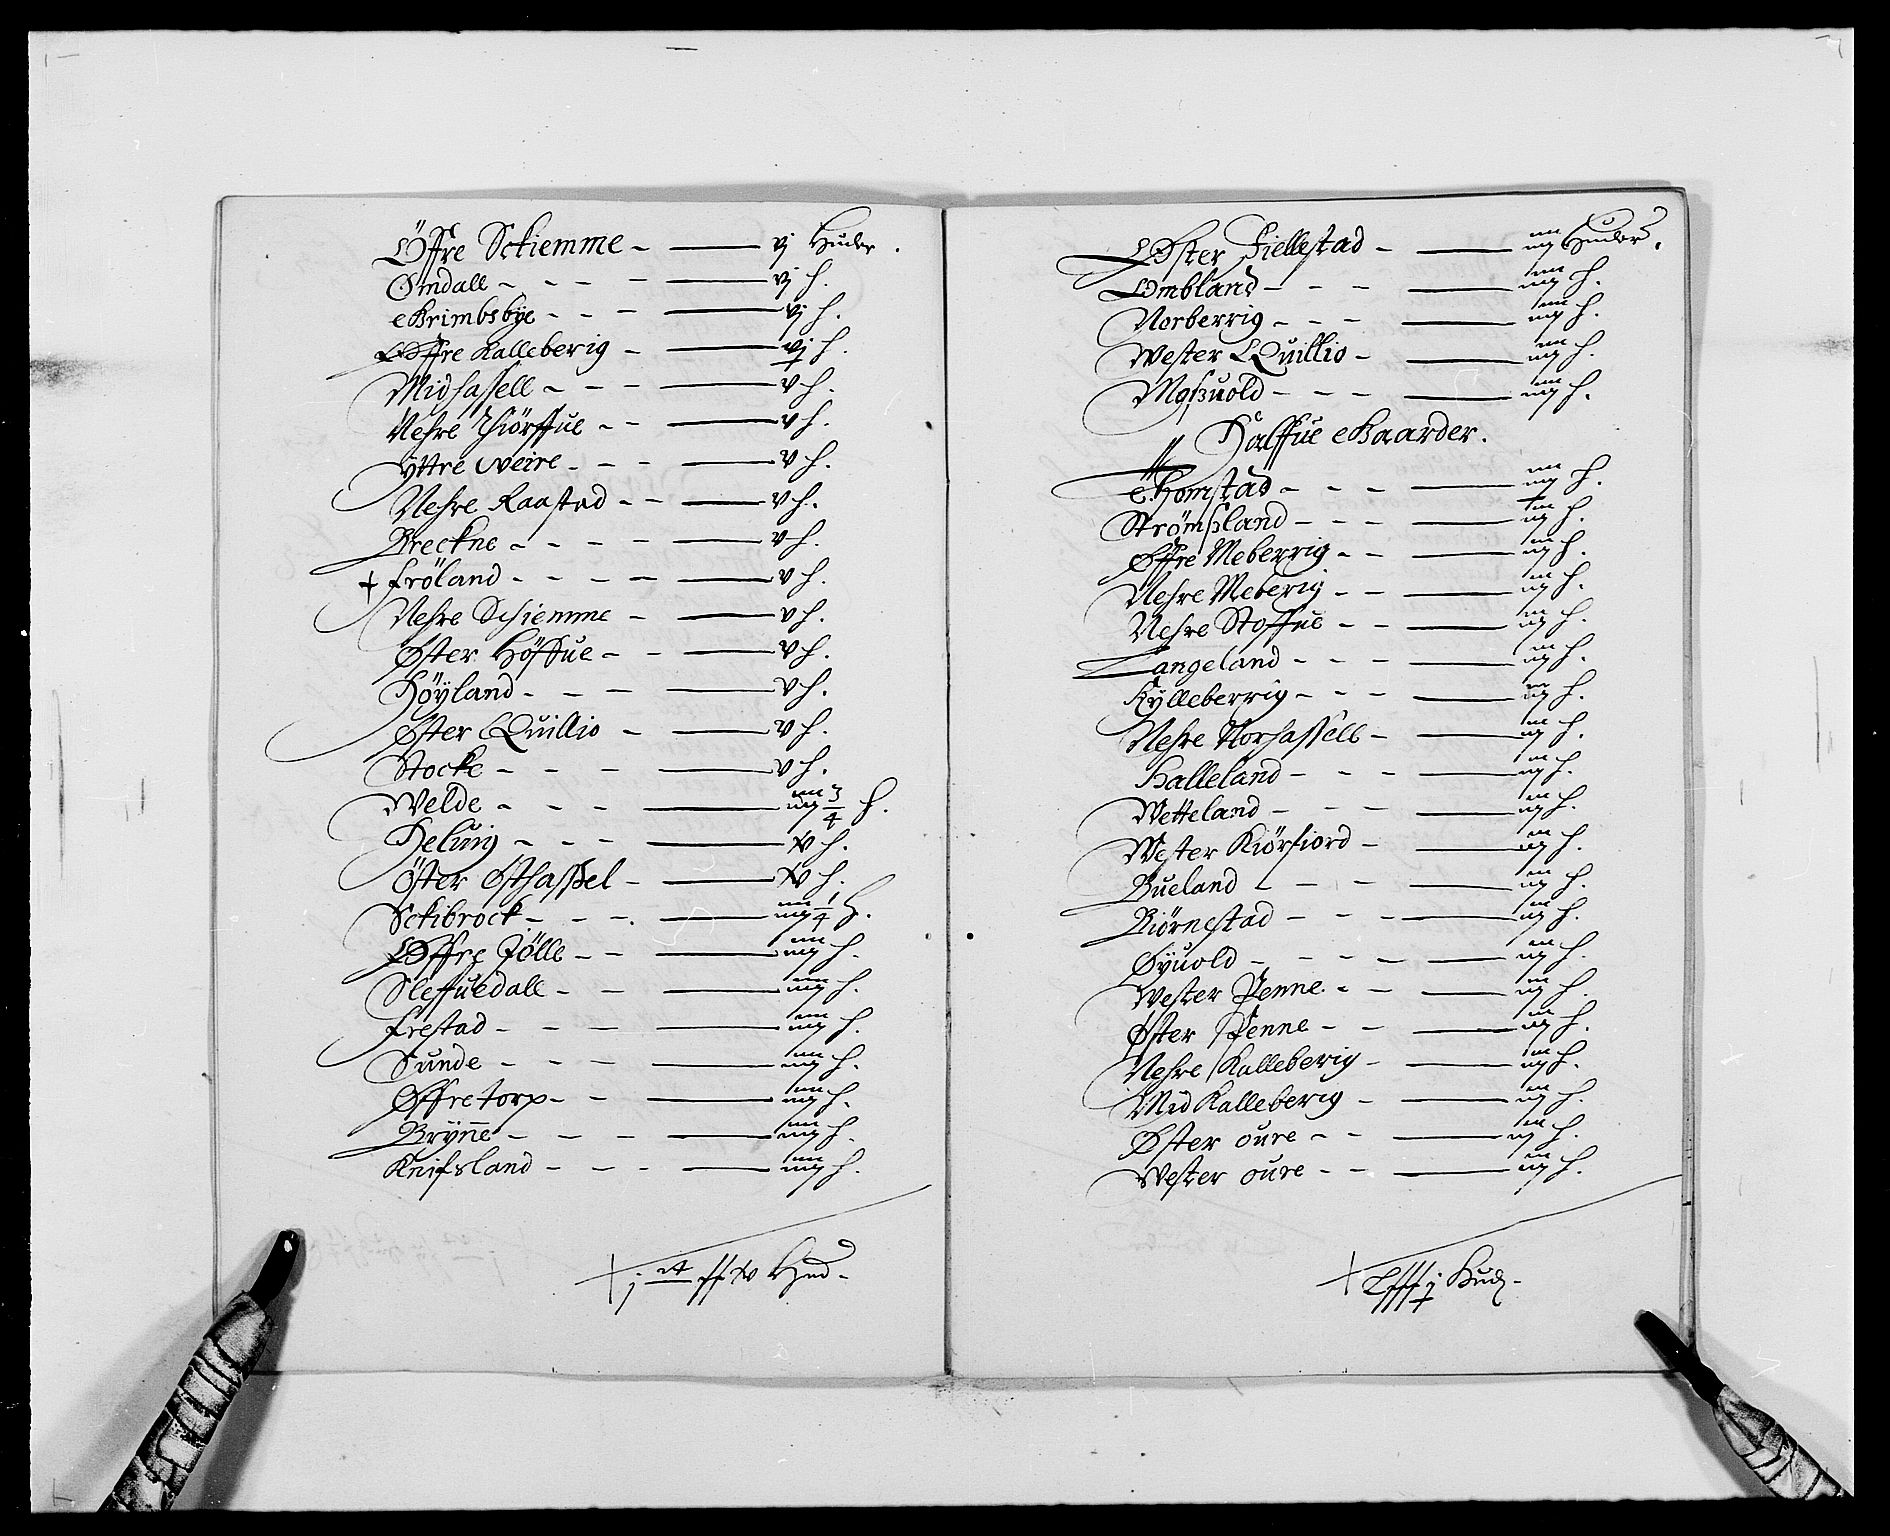 Öffre Sckiemme - — vj Huder.
Omdall - - - - — vj h.
Grimbsbÿe - - - — vj h.
Öffre Kalleberig - — vj h.
Midhassell - - - — v h.
Nehre Thiörffue - - — v h.
Ÿttre Weire - - - — v h.
Nehre Raastad - - — v h.
Breckne - - - - — v h.
+ Fröland - - - - — v h.
Nehre Schiemme - — v h.
Øster Höffue - - — v h.
Höÿland - - - — v h.
Øster Quillio - — v h.
Stocke - - - - — v h.
Welde - - - — iiij 3/4 h.
Heluig - - - — v h.
Öster Østhassel - — v h.
Sckibrock - - - — iiij 1/4 h.
Øffre Jölle - - — iiij h.
Sleffuedall - - — iiij h.
Frestad - - - — iiij h.
Sunde - - - — iiij h.
Øffretorp - - — iiij h.
Brÿnne - - - — iiij h.
Knifsland - - - — iiij h.
Hud -
Øster Fiellestad - — iiij Huder.
Ombland - - - — iiij h.
Norberrig - - - — iiij h.
Wester Quillio - — iiij h.
Moßuold - - - — iiij h.
Halffue Gaarder.
Homstad - - - — iiij h.
Strömßland - - - — iij h.
Øffre Meberrig - - — iij h.
Nehre Meberig - - — iij h.
Nehre Stoffue - - — iij h.
Langeland - - - — iij h.
Kÿlleberrig - - - — iij h.
Nehre Norhassell - — iij h.
Halleland - - - — iij h.
Wetteland - - - — iij h.
Wester Kiörfiord - — iij h.
Bueland - - - — iij h.
Biörnestad - - - — iij h.
Øÿuold - - - - — iij h.
Wester Penne - - — iij h.
Øster Penne - - — iij h.
Nehre Kalleberig - — iij h.
Mid Kalleberig - — iij h.
Øster oure - - — iij h.
Wester oure - - — iij h.
Hud -